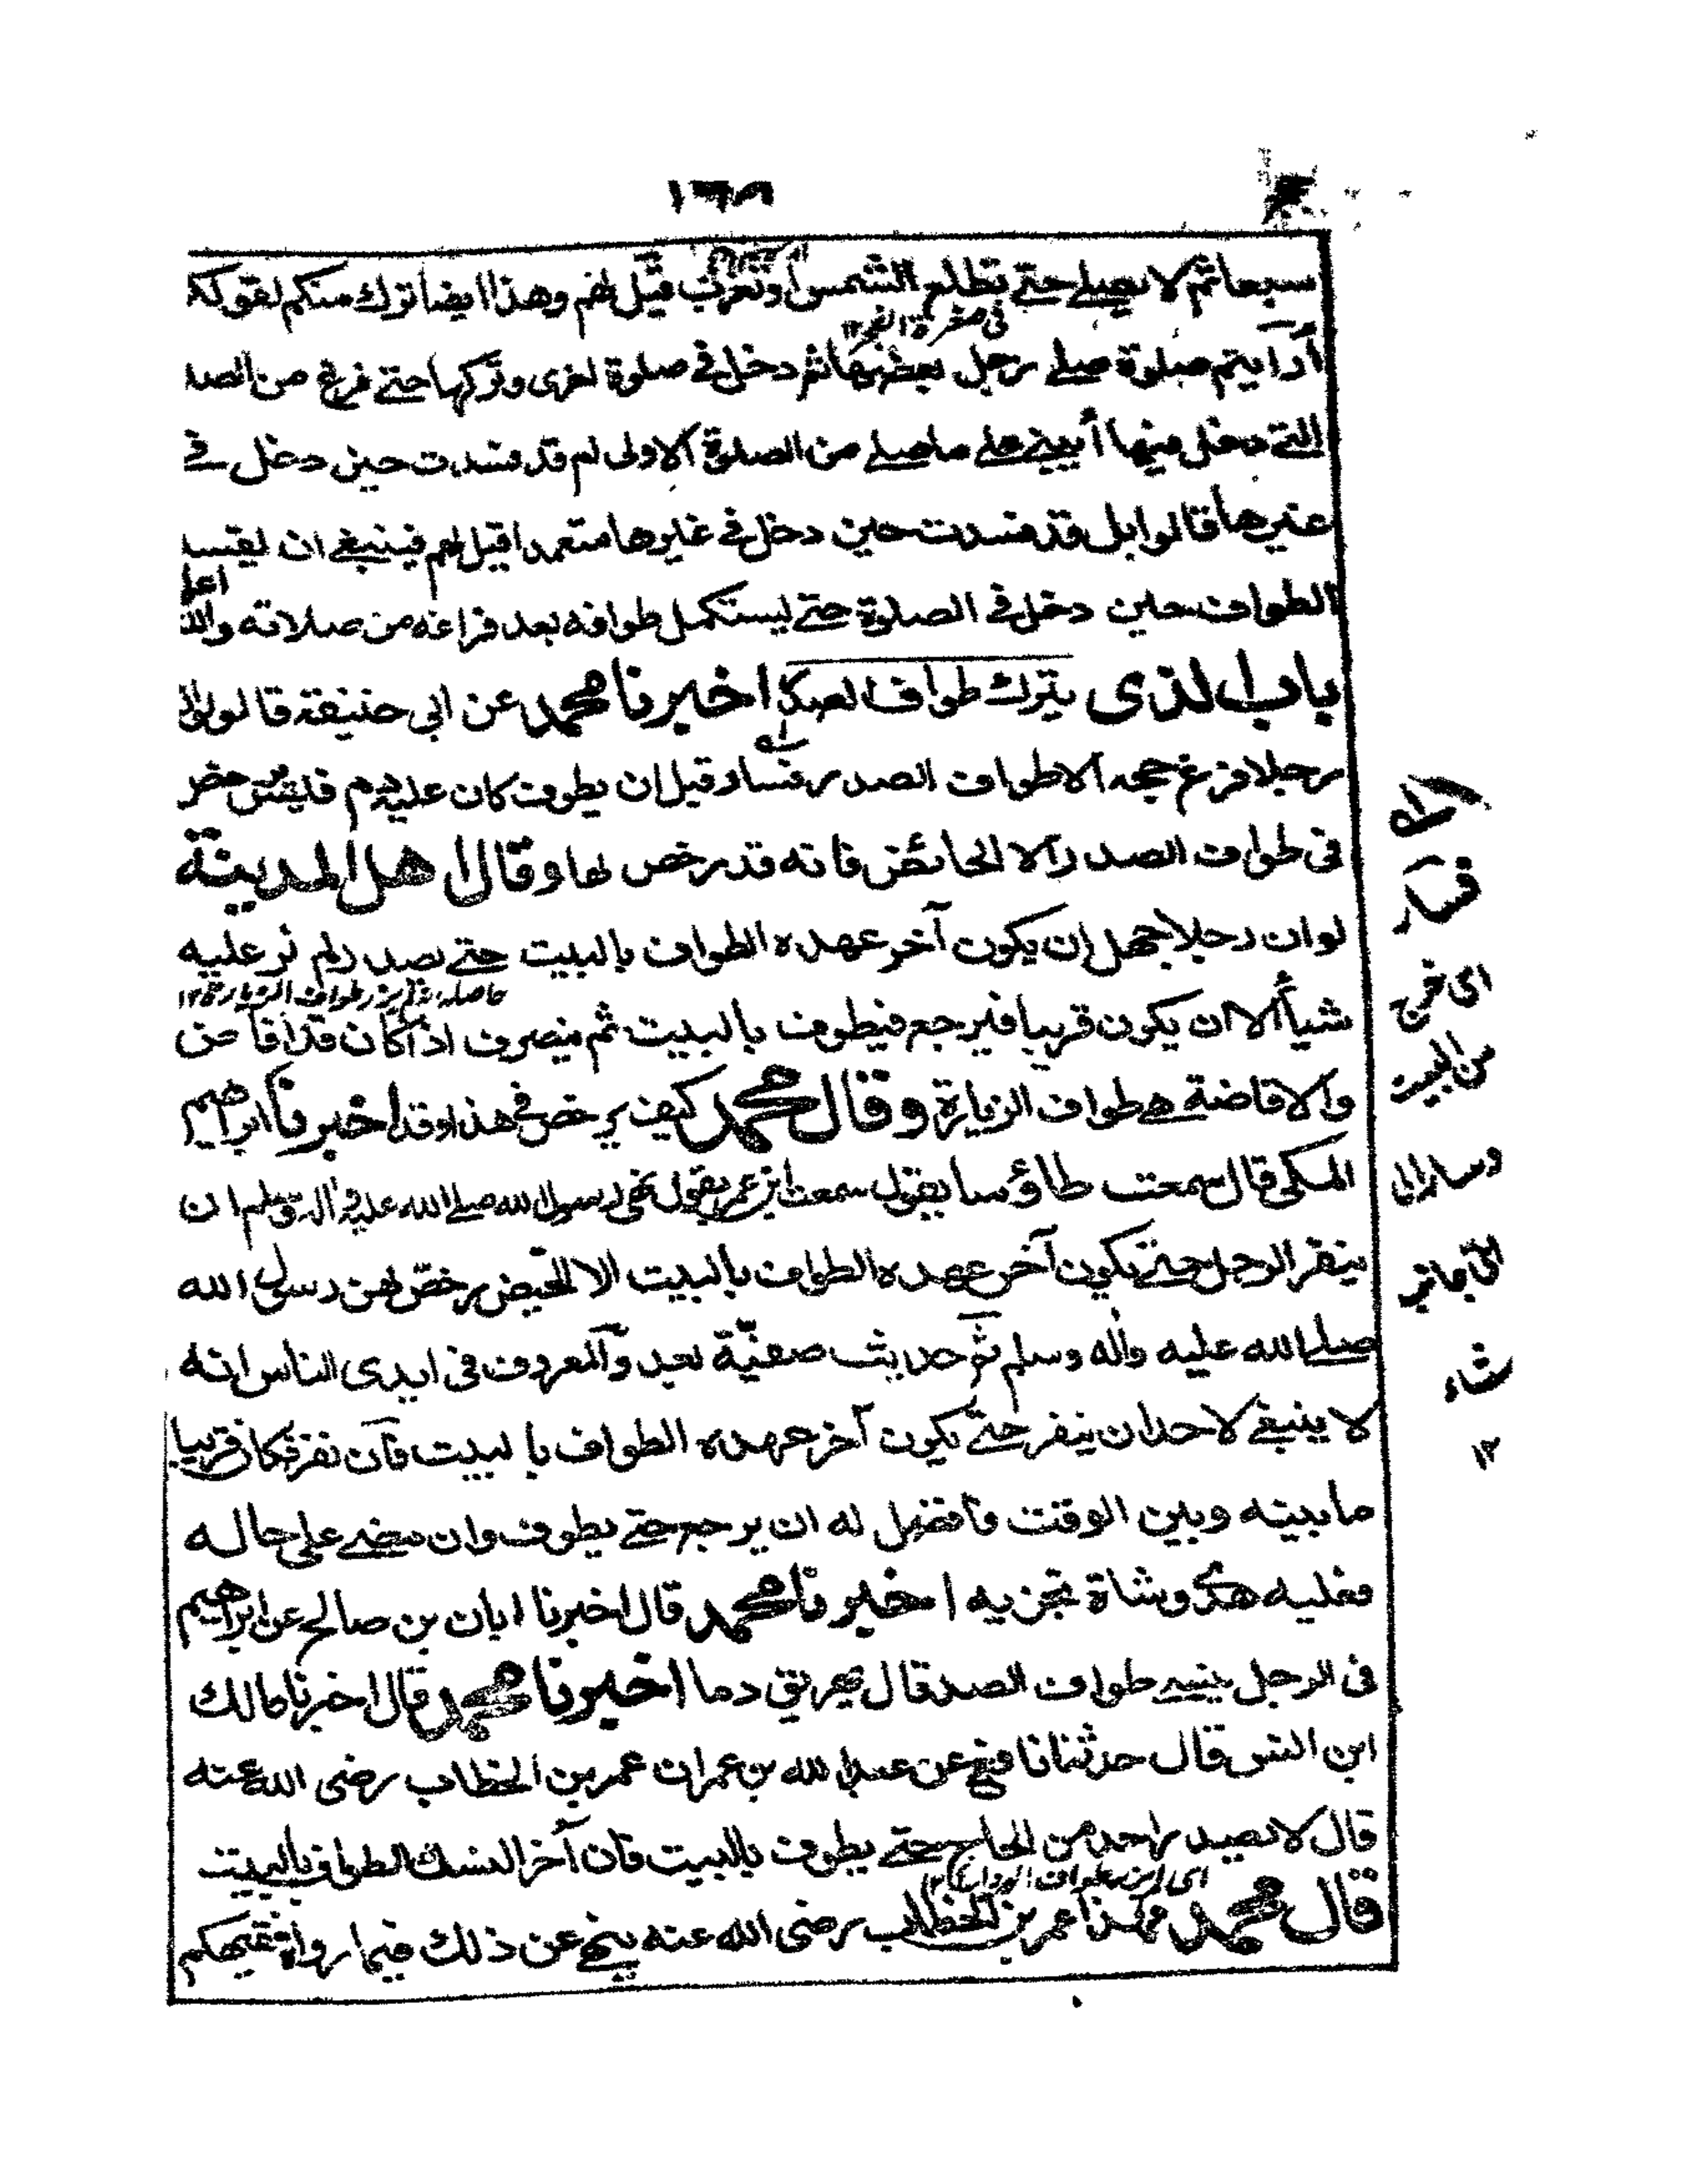 ١٦٨
سبعا ثم لا يصلے حتے تطلع الشمس او تغرب قيل لهم وهذا ايضا ترك منكم لقولكم
أرايتم صلوة صلے رجل بعضها ثم دخل فے صلوة اخرى وتركها حتے فرغ من الصلا
التے دخل فيها أيبنے علے ما صلے من الصلوة الاولى ام قد فسدت حين دخل فے
غيرها قالوا بل قد فسدت حين دخل فے غيرها متعمدا قيل لهم فينبغے ان يفسد
الطواف حين دخل فے الصلوة حتے يستكمل طوافه بعد فراغه من صلاته والله اعلم
باب الذى يترك طواف الصدر اخبرنا محمد عن ابى حنيفة قال لو ان
رجلا فرغ حجه الا طواف الصدر فسار قبل ان يطوف كان عليه دم فليس رخص
فى طواف الصدر الا الحائض فانه قد رخص لها وقال اهل المدينة
لو ان رجلا جهل ان يكون آخر عهده الطواف بالبيت حتے صدر لم نر عليه
شيأ الا ان يكون قريبا فيرجع فيطوف بالبيت ثم ينصرف اذا كان قد افاض
والافاضة هے طواف الزيارة وقال محمد كيف يرخص فے هذا وقد اخبرنا ابراهيم
المكى قال سمعت طاؤسا يقول سمعت ابن عمر يقول نهى رسول الله صلے الله عليه وآله وسلم ان
ينفر الرجل حتے يكون آخر عهده الطواف بالبيت الا الحيض رخص لهن رسول الله
صلے الله عليه واله وسلم ثم حديث صفيّة بعد والمعروف فى ايدى الناس انه
لا ينبغے لاحد ان ينفر حتے يكون آخر عهده الطواف بالبيت فان نفر فكان قريبا
ما بينه وبين الوقت فافضل له ان يرجع حتے يطوف وان مضے على حاله
فعليه هدى وشاة تجزيه اخبرنا محمد قال اخبرنا ابان بن صالح عن ابراهيم
فى الرجل ينسے طواف الصدر قال يهريق دما اخبرنا محمد قال اخبرنا مالك
ابن انس قال حدثنا نافع عن عبد الله بن عمر ان عمر بن الخطاب رضى الله عنه
قال لا يصدر احد من الحاج حتے يطوف بالبيت فان آخر النسك الطواف بالبيت
قال محمد فهذا عمر بن الخطاب رضى الله عنه ينهے عن ذلك فيما رواه فقيهكم
اى
فسار
اى خرج
من البيت
وسار الى
شاء
١٢